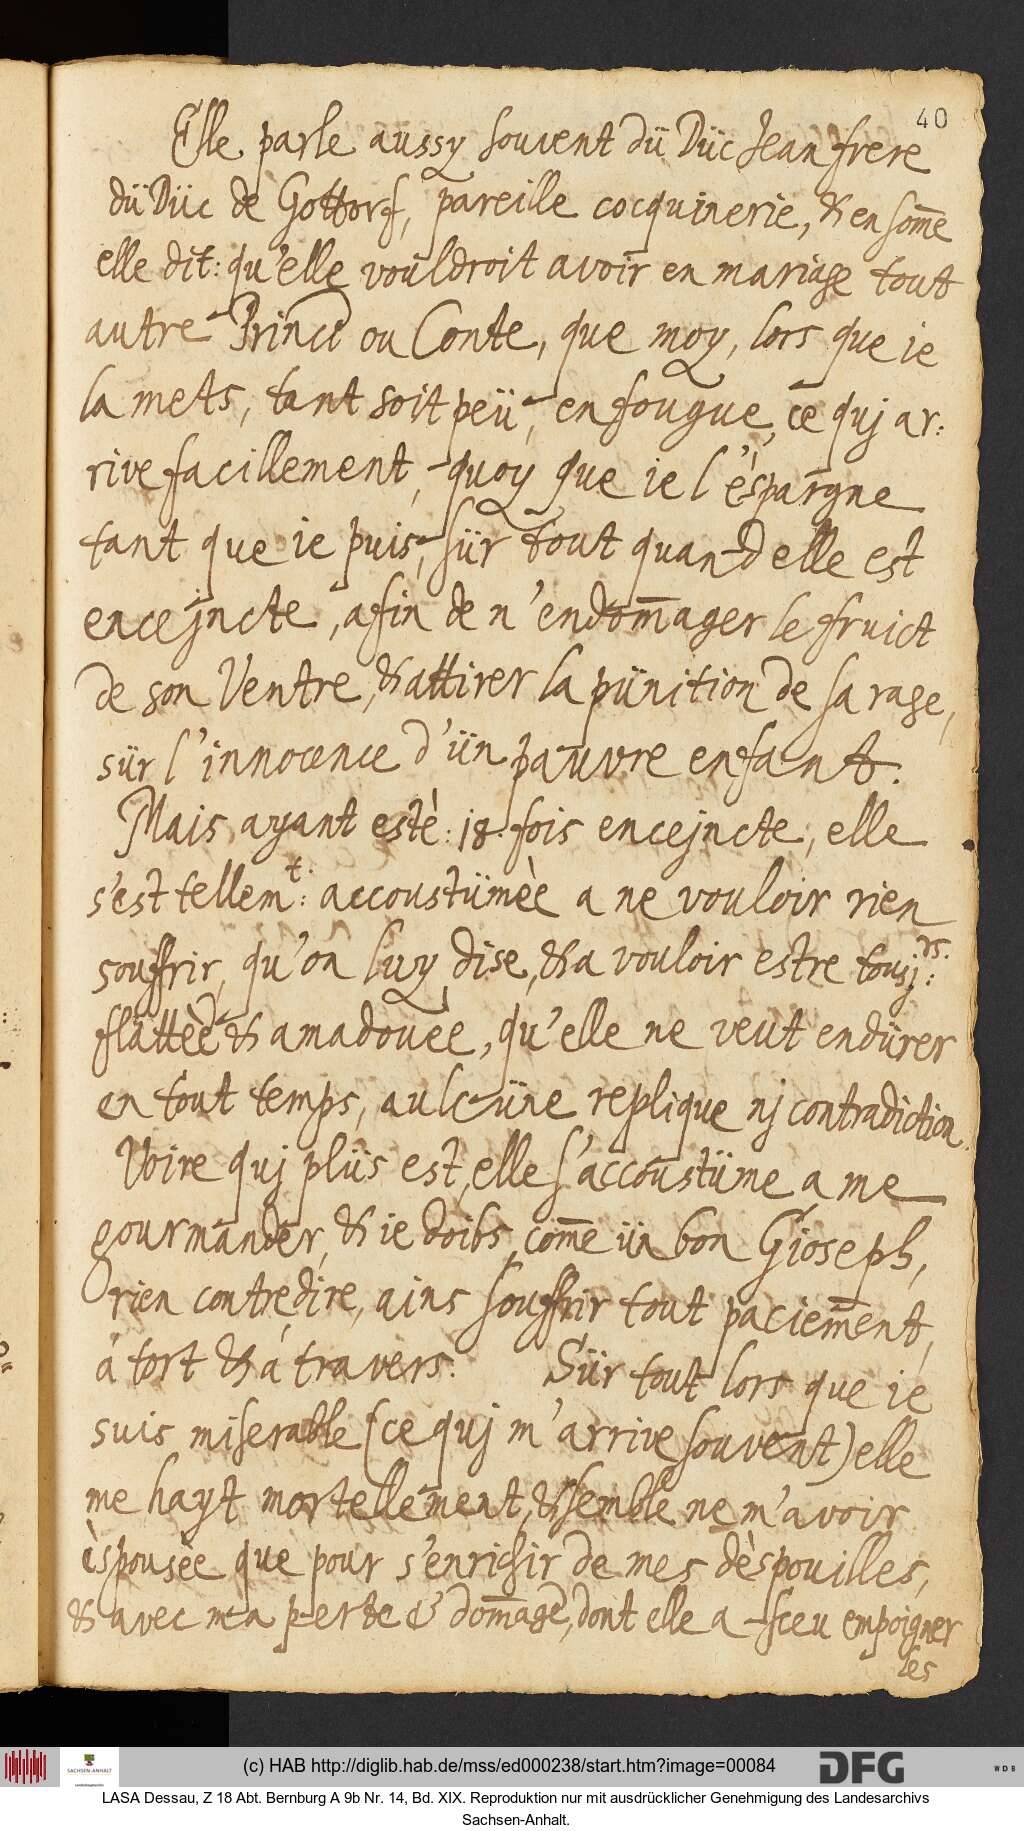 40
Elle parle aussy souvent dü Düc Jean frere
dü Düc de Gottorf, pareille cocquinerie, & en som̄e
elle dit: qu'elle vouldroit avoir en mariage tout
autre Prince ou Conte, que moy, lors que ie
la mets, tant soit peü, en fougue, ce quj ar:
rive facillement, quoy que ie l'èspargne
tant que ie puis, sür tout quand elle est
encejncte, afin de n'endom̄ager le fruict
de son Ventre, & attirer la pünition de sa rage,
sür l'innocence d'ün pauvre enfant.
Mais ayant estè: 18. fois encejncte, elle
s'est tellem.t: accoustümèe a ne vouloir rien
souffrir, qu'on luy dise, & a vouloir estre tousj:rs.
flattèe & amadouee, qu'elle ne veut endürer
en tout temps, aulcüne replique nj contradiction.
Voire quj plüs est, elle s'accoustüme a me
gourmander, & ie doibs, com̄e ün bon Gioseph,
rien contredire, ains souffrir tout paciem̄ent,
á tort & á travers. Sür tout lors que ie
suis miserable (ce quj m'arrive souvent) elle
me hayt mortellement, & semble ne m'avoir
èspousèe que pour s'enrichir de mes dèspouilles,
& avec ma perte & dom̄age, dont elle a sceu empoigner
les
(c) HAB http://diglib.hab.de/mss/ed000238/start.htm?image=00084
SACHSEN-ANHALT
DFG
WDB
LASA Dessau, Z 18 Abt. Bernburg A 9b Nr. 14, Bd. XIX. Reproduktion nur mit ausdrücklicher Genehmigung des Landesarchivs
Sachsen-Anhalt.